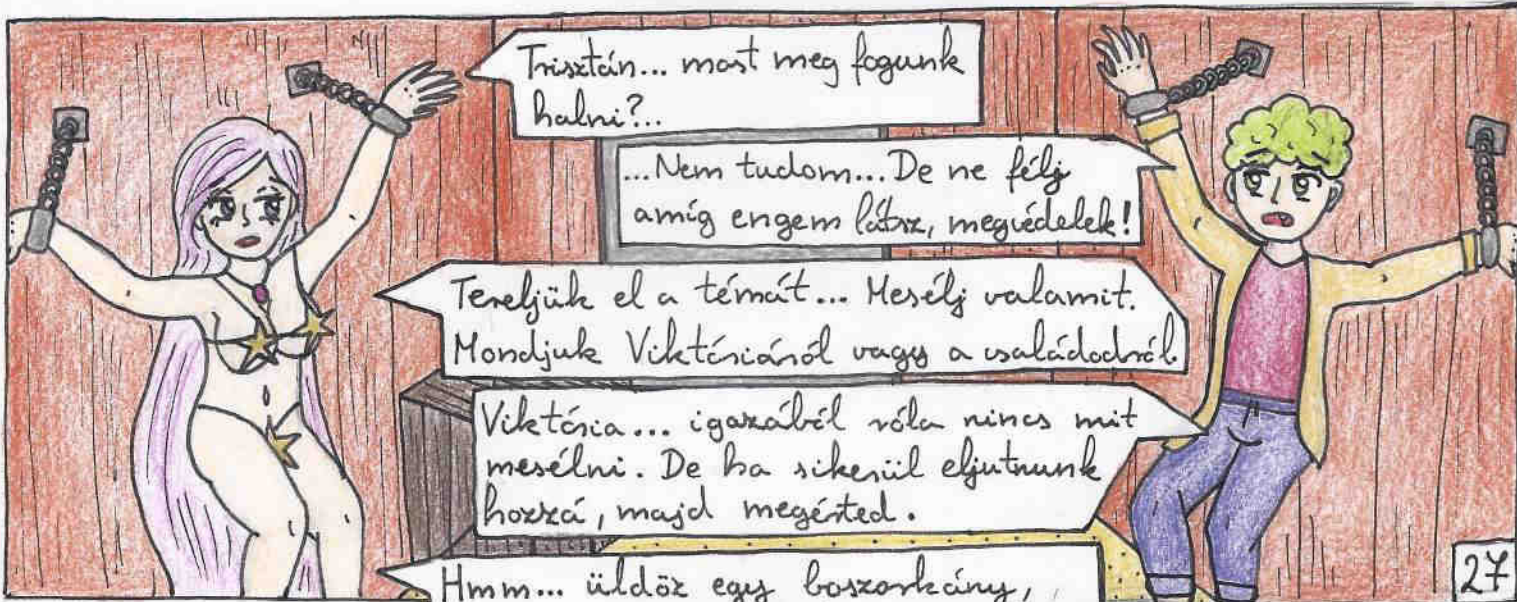 Trisztán... most meg fogunk
halni?..
...Nem tudom... De ne félj
amíg engem látsz, megvédelek!
Tereljük el a témát... Mesélj valamit.
Mondjuk Viktóriáról vagy a családodról.
Viktória... igazából róla nincs mit
mesélni. De ha sikerül eljutnunk
hozzá, majd megérted.
Hmm... üldöz egy boszorkány,
27